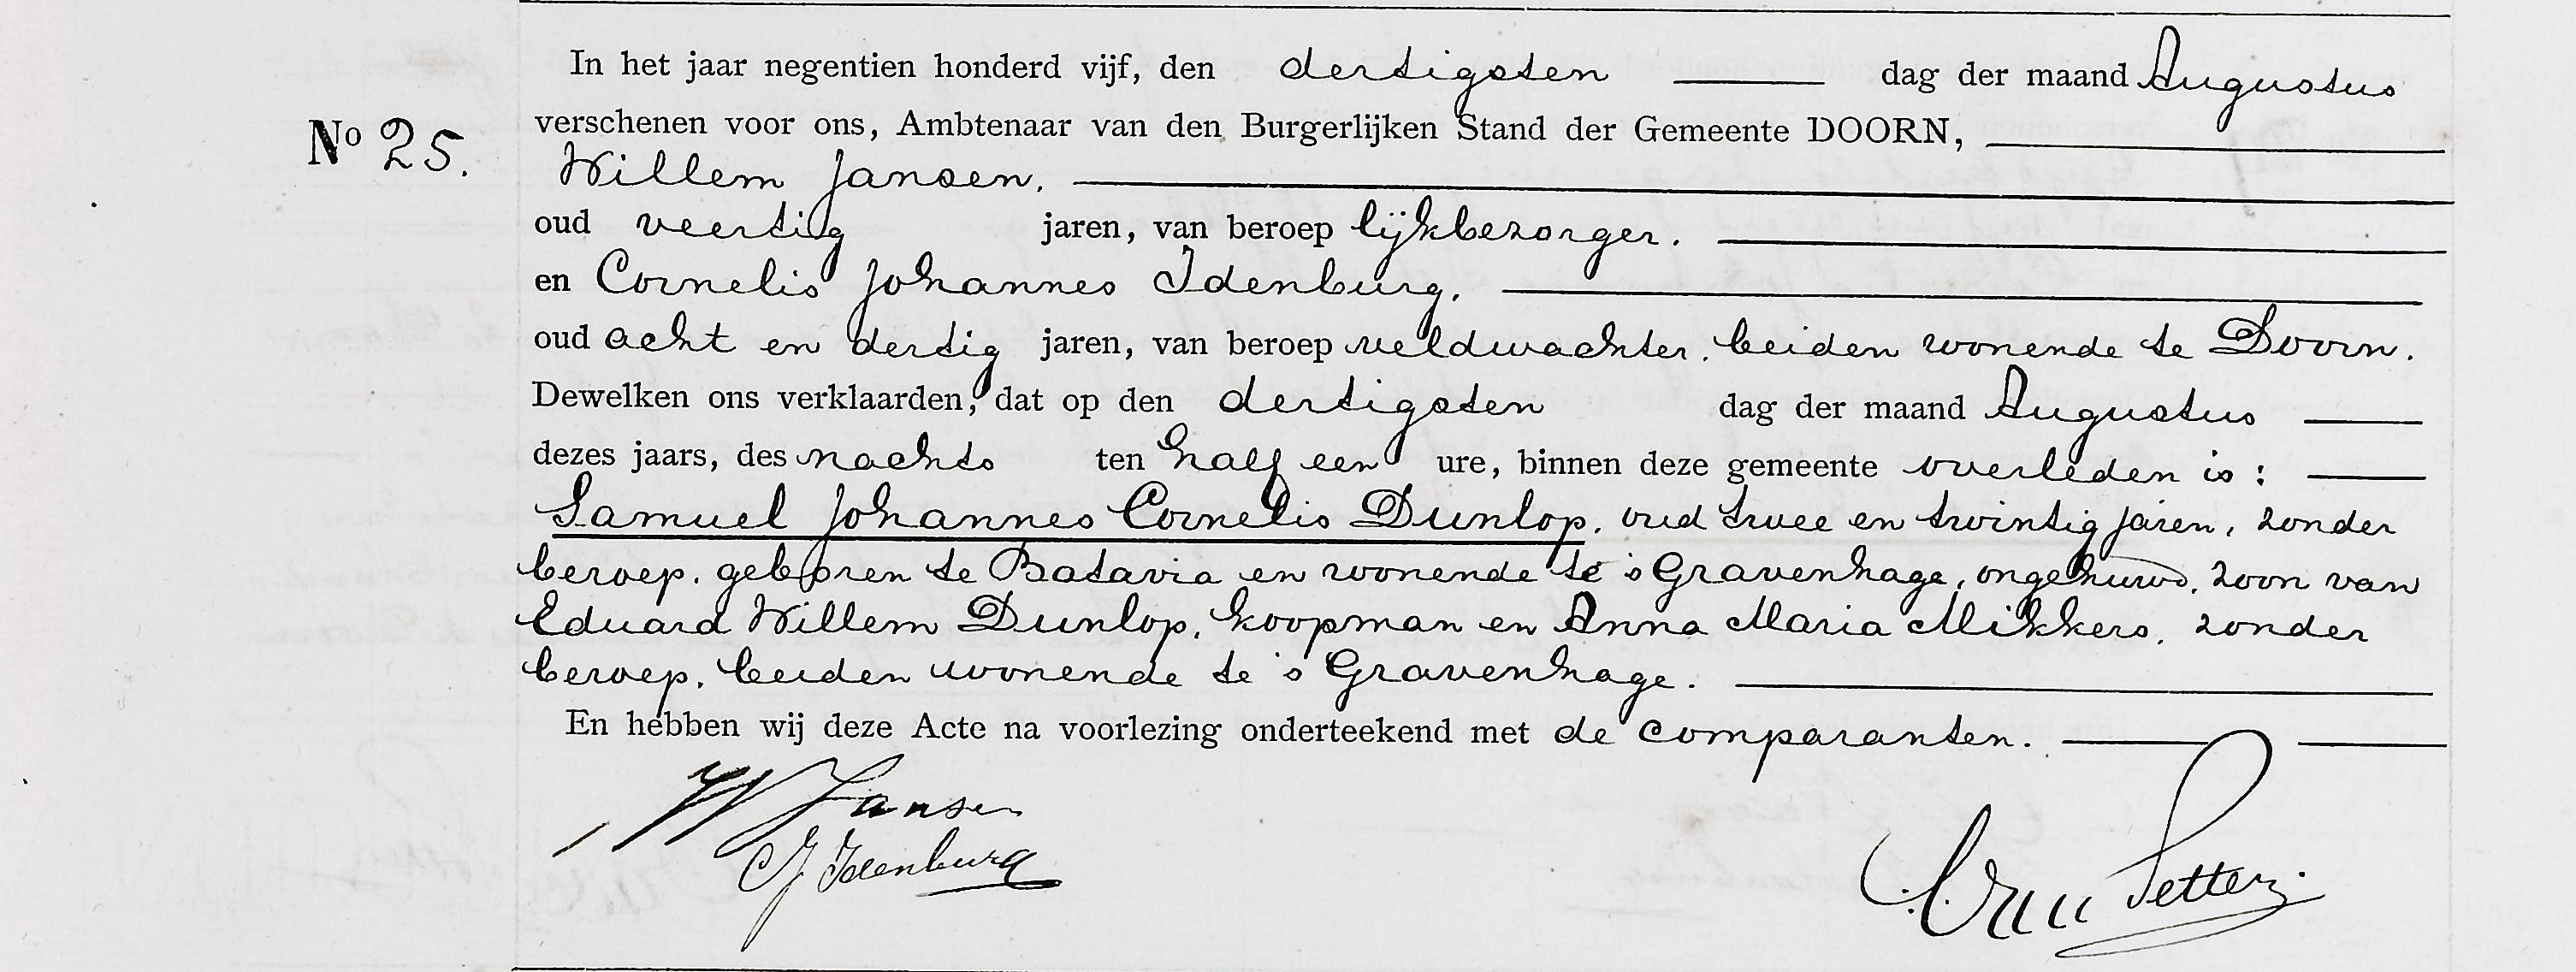 In het jaar negentien honderd vijf, den dertigsten dag der maand Augustus
No 25.
verschenen voor ons, Ambtenaar van den Burgerlijken Stand der Gemeente DOORN,
Willem Jansen.
oud veertig jaren, van beroep lijkbezorger.
en Cornelis Johannes Idenburg.
oud acht en dertig jaren, van beroep veldwachter. beiden wonende te Doorn.
Dewelken ons verklaarden, dat op den dertigsten dag der maand Augustus
dezes jaars, des nachts ten half een ure, binnen deze gemeente overleden is:
Samuel Johannes Cornelis Dunlop. oud twee en twintig jaren, zonder
beroep. geboren te Batavia en wonende te 's Gravenhage, ongehuwd. zoon van
Eduard Willem Dunlop. koopman en Anna Maria Mikkers. zonder
beroep. beiden wonende te 's Gravenhage.
En hebben wij deze Acte na voorlezing onderteekend met de comparanten.
W Jansen
CJ Idenburg